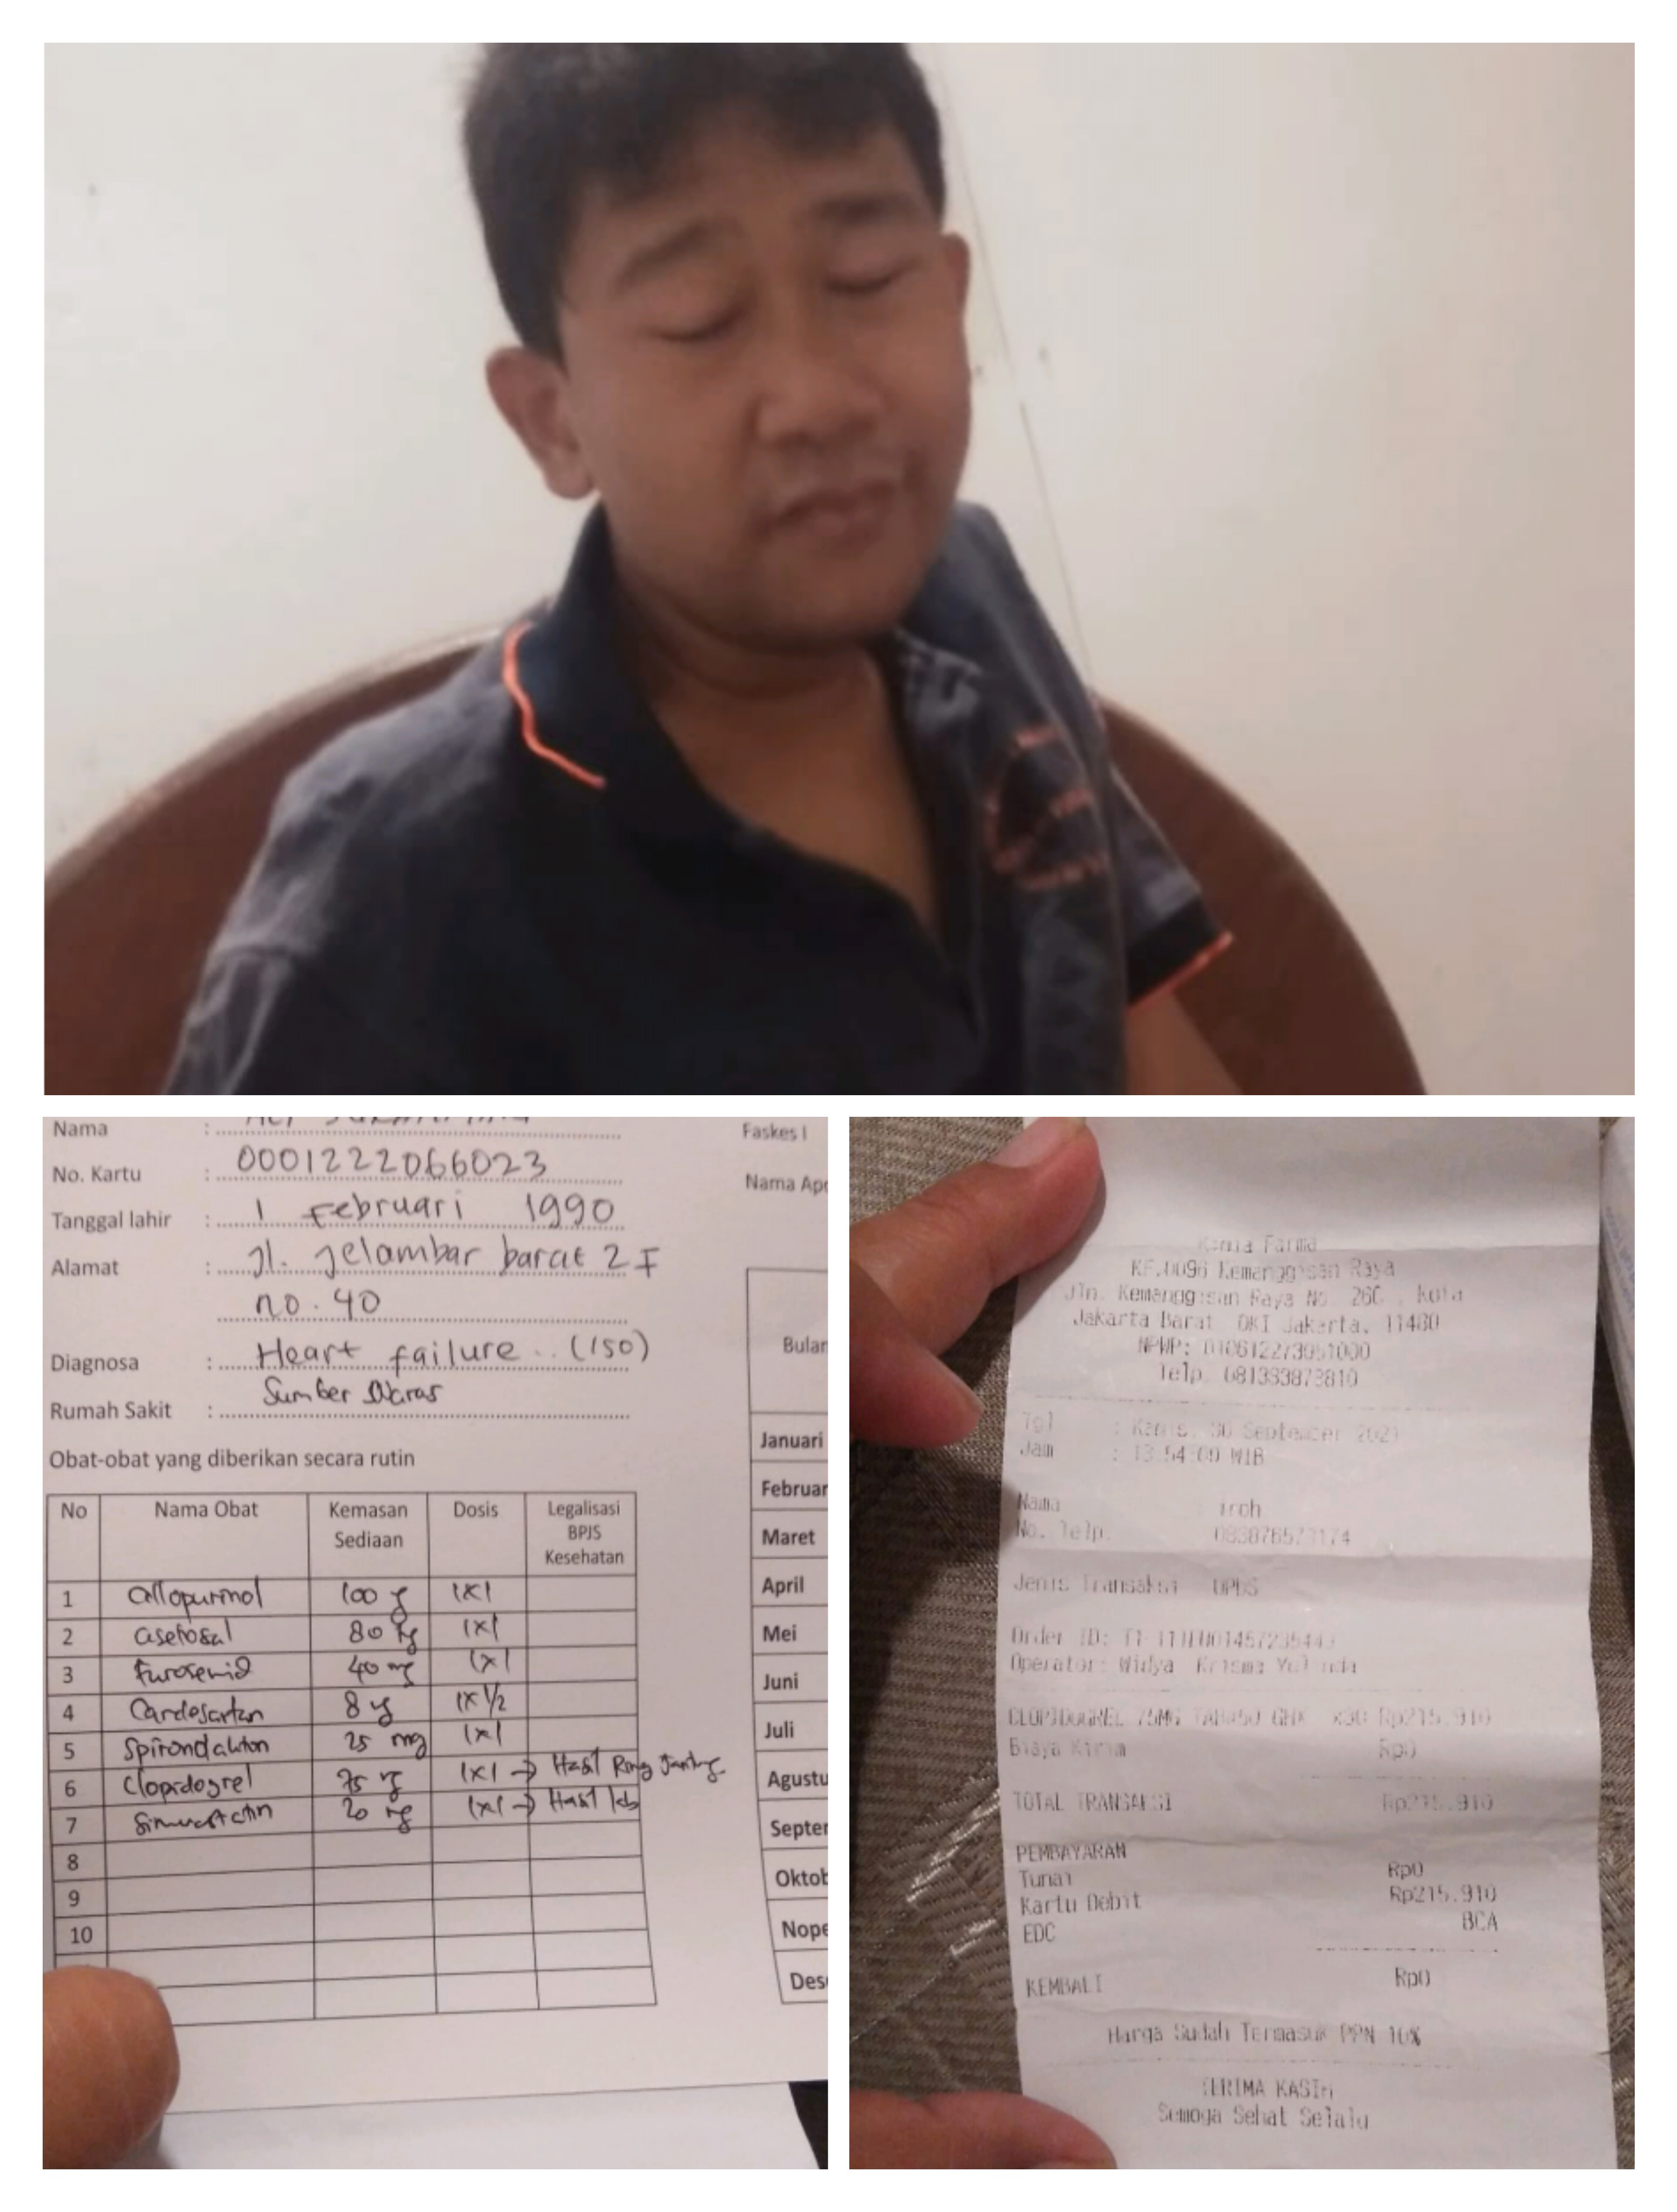 Nama :
No. Kartu : 0001222066023
Tanggal lahir : 1 Februari 1990
Alamat : Jl. Jelambar barat 2 F
no. 40
Diagnosa : Heart failure .. (150)
Rumah Sakit : Sumber Waras
Obat-obat yang diberikan secara rutin
No Nama Obat Kemasan Sediaan Dosis Legalisasi BPJS Kesehatan
1 Allopurinol 100 1x1
2 asetosal 80 1x1
3 Furosemid 40 mg 1x1
4 Candesartan 8 1x1/2
5 Spironolakton 25 mg 1x1
6 Clopidogrel 75 1x1 → Hasil Ring Jantung
7 Simvastatin 20 1x1 → Hasil lab
8
9
10
Faskes I
Nama Apo
Bulan
Januari
Februar
Maret
April
Mei
Juni
Juli
Agustu
Septer
Oktob
Nope
Des
Kimia Farma
KF.0096 Kemanggisan Raya
Jln. Kemanggisan Raya No. 26C , Kota
Jakarta Barat DKI Jakarta, 11480
NPWP:
Telp. 081383873810
Tgl : Kamis, 30 September 2021
Jam : 13:54:09 WIB
Nama : iroh
No. Telp.
Jenis Transaksi UPDS
Order ID:
Operator: Widya Krisma Yulinda
CLOPIDOGREL 75MG Rp215.910
Biaya Kirim Rp0
TOTAL TRANSAKSI Rp215.910
PEMBAYARAN
Tunai Rp0
Kartu Debit Rp215.910
EDC BCA
KEMBALI Rp0
Harga Sudah Termasuk PPN 10%
TERIMA KASIH
Semoga Sehat Selalu